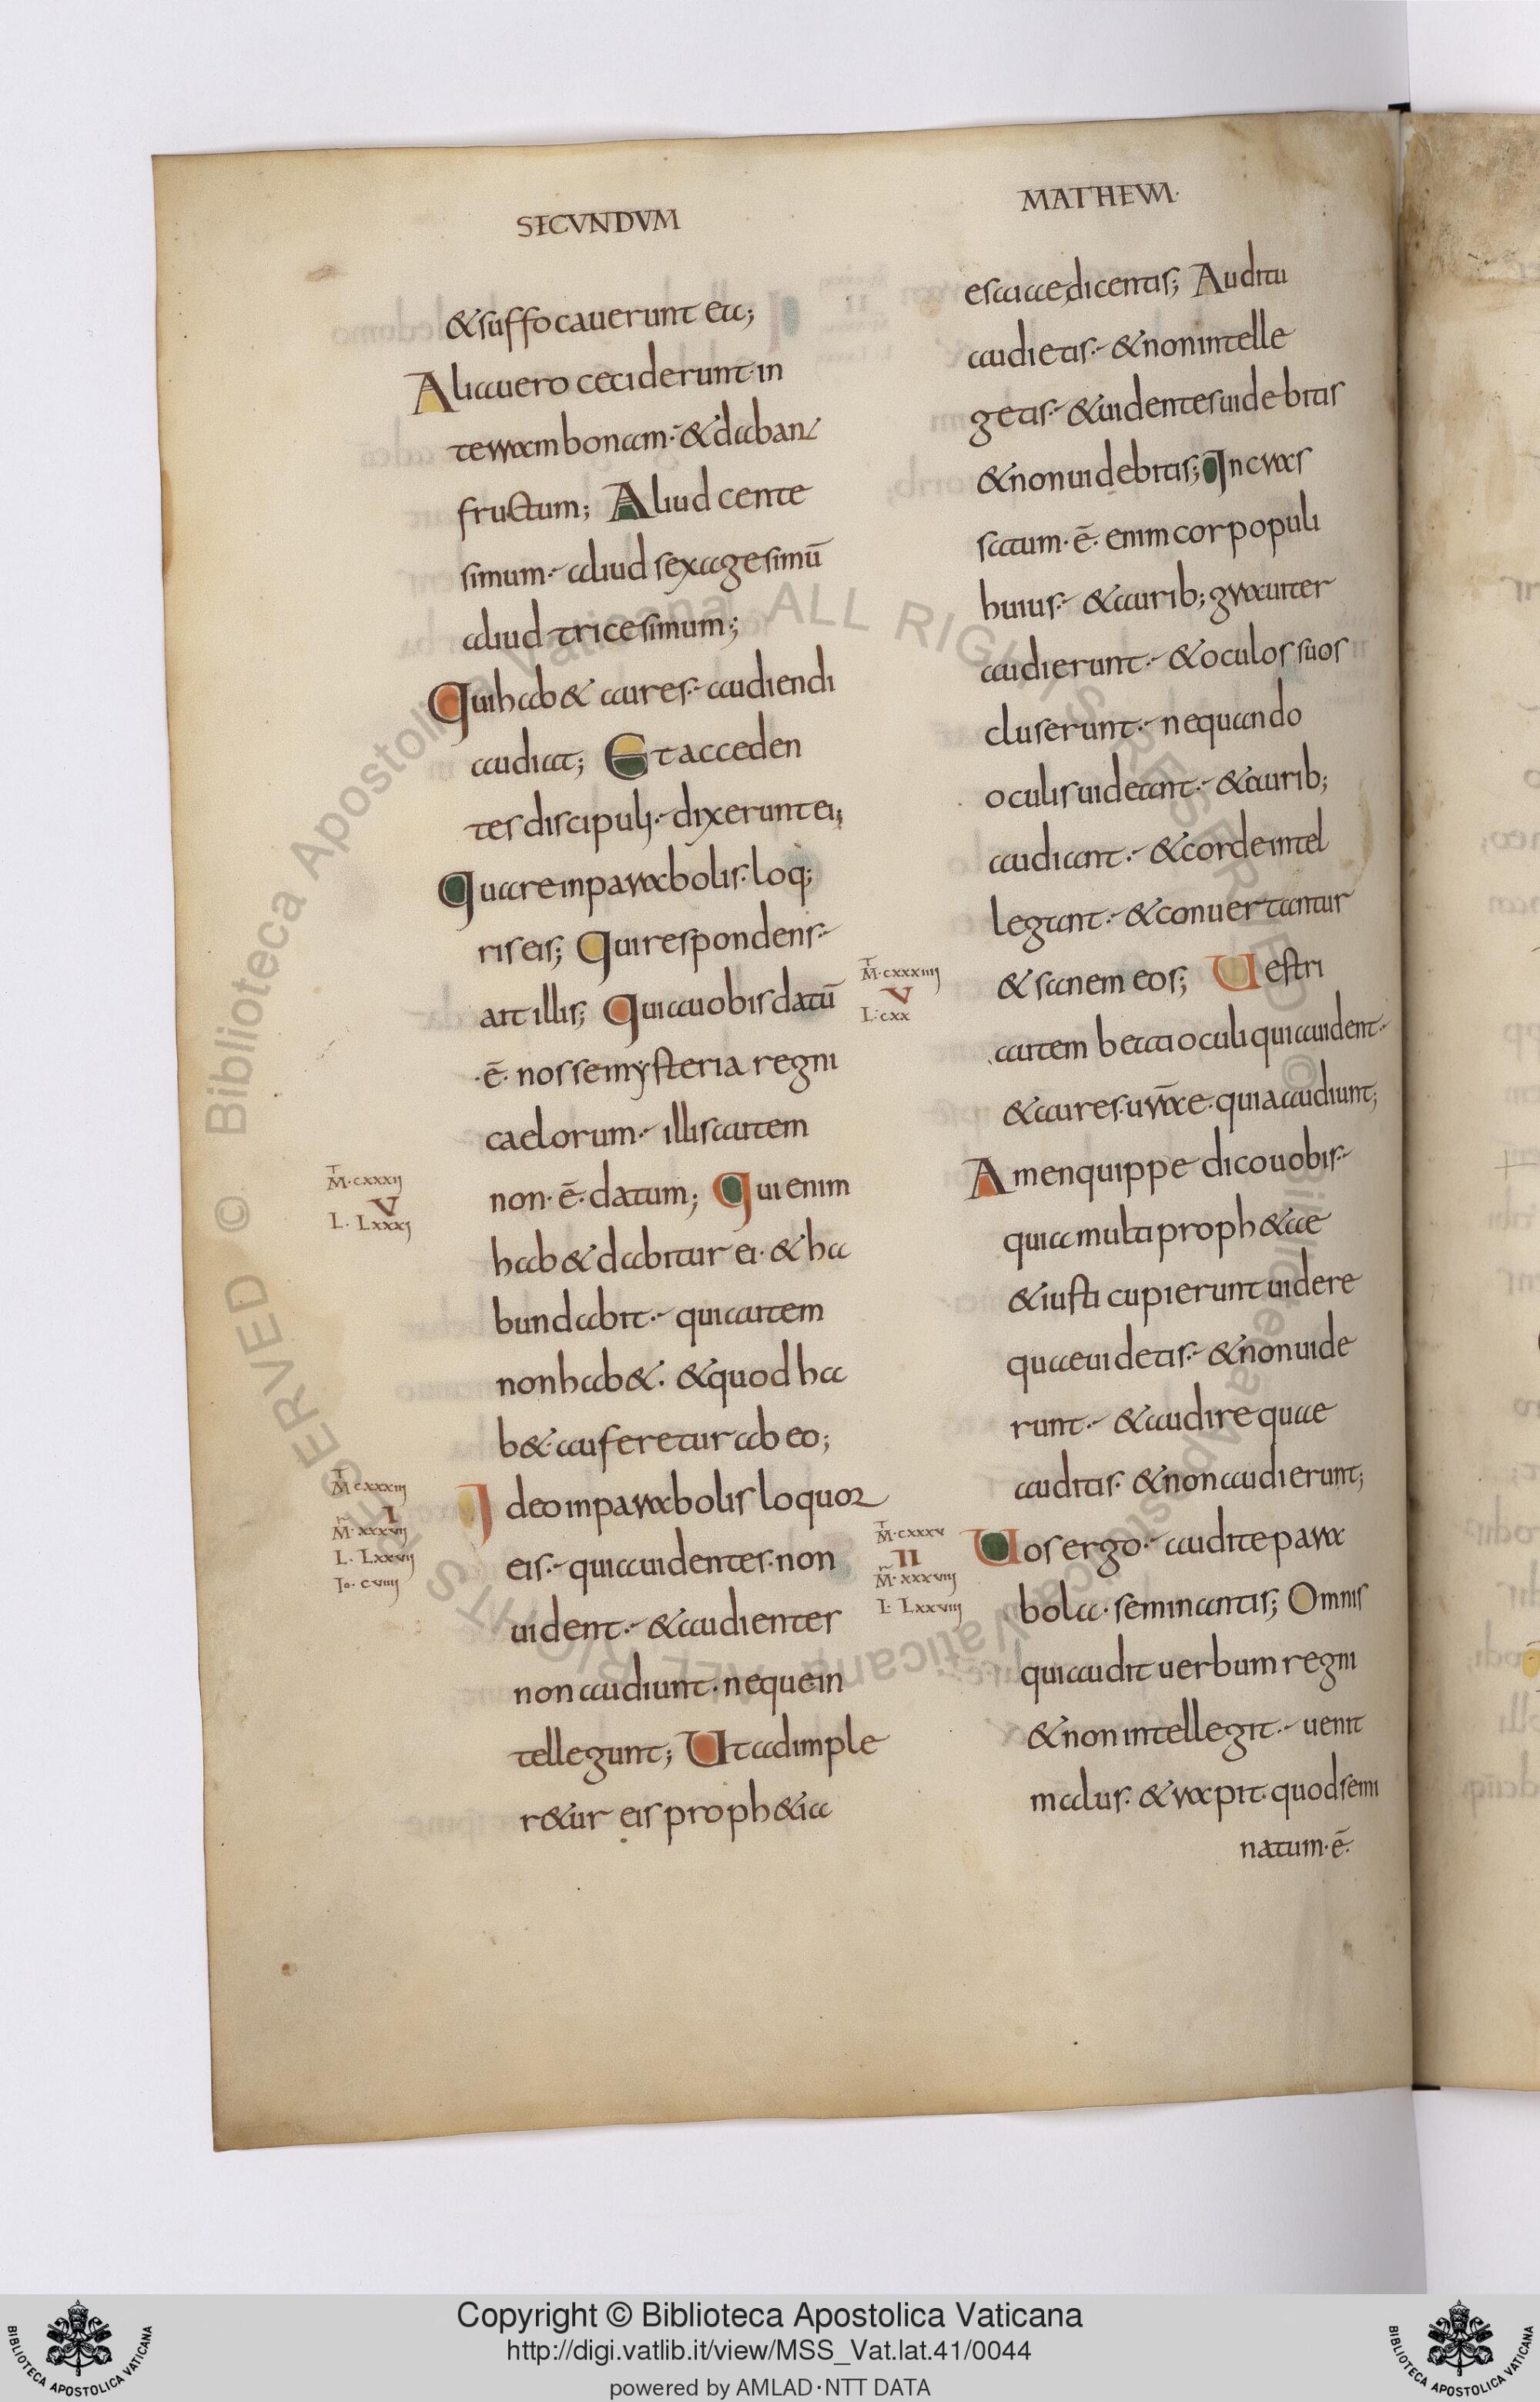 SECVNDVM
& suffocauerunt ea;
Alia uero ceciderunt in
terram bonam. & daban
fructum; Aliud cente
simum. aliud sexagesimū
aliud tricesimum;
Qui hab& aures. audiendi
audiat; Et acceden
tes discipuli. dixerunt ei;
Quare in parabolis. loq;
ris eis; Qui respondens.
ait illis; Quia uobis datū
·ē· nosse mysteria regni
caelorum. illis autem
M·cxxxij
non·ē· datum; Qui enim
V
L·Lxxxj
hab& dabitur ei· & ha
bundabit. qui autem
non hab&. & quod ha
b& auferetur ab eo;
M cxxxiij
Ideo in parabolis loquor
I
M̄·xxxvij
L·Lxxvij
Io·cviiij
eis. quia uidentes. non
uident. & audientes
non audiunt. neque in
tellegunt; Ut adimple
r&ur eis proph&ia
MATHEVM·
esaiae dicentis; Auditu
audietis. & non intelle
getis. & uidentes uidebitis
& non uidebitis; Incras
satum·ē· enim cor populi
huius. & aurib; grauiter
audierunt. & oculos suos
cluserunt. nequando
oculis uideant. & aurib;
audiant. & corde intel
legant. & conuertantur
M·cxxxiiij
V
L·cxx
& sanem eos; Uestri
autem beati oculi quia uident.
& aures. ur̄ae. quia audiunt;
Amen quippe dico uobis.
quia multi proph&ae
& iusti cupierunt uidere
quae uidetis. & non uide
runt. & audire quae
auditis. & non audierunt;
M·cxxxv
II
M̄·xxxviij
L·Lxxviij
Uos ergo. audite para
bola· seminantis; Omnis
qui audit uerbum regni
& non intellegit. uenit
malus. & rapit quod semi
natum·ē·
Copyright © Biblioteca Apostolica Vaticana
http://digi.vatlib.it/view/MSS_Vat.lat.41/0044
powered by AMLAD·NTT DATA
BIBLIOTECA APOSTOLICA VATICANA
BIBLIOTECA APOSTOLICA VATICANA
© Biblioteca Apostolica Vaticana ALL RIGHTS RESERVED © Biblioteca Apostolica Vaticana ALL RIGHTS RESERVED